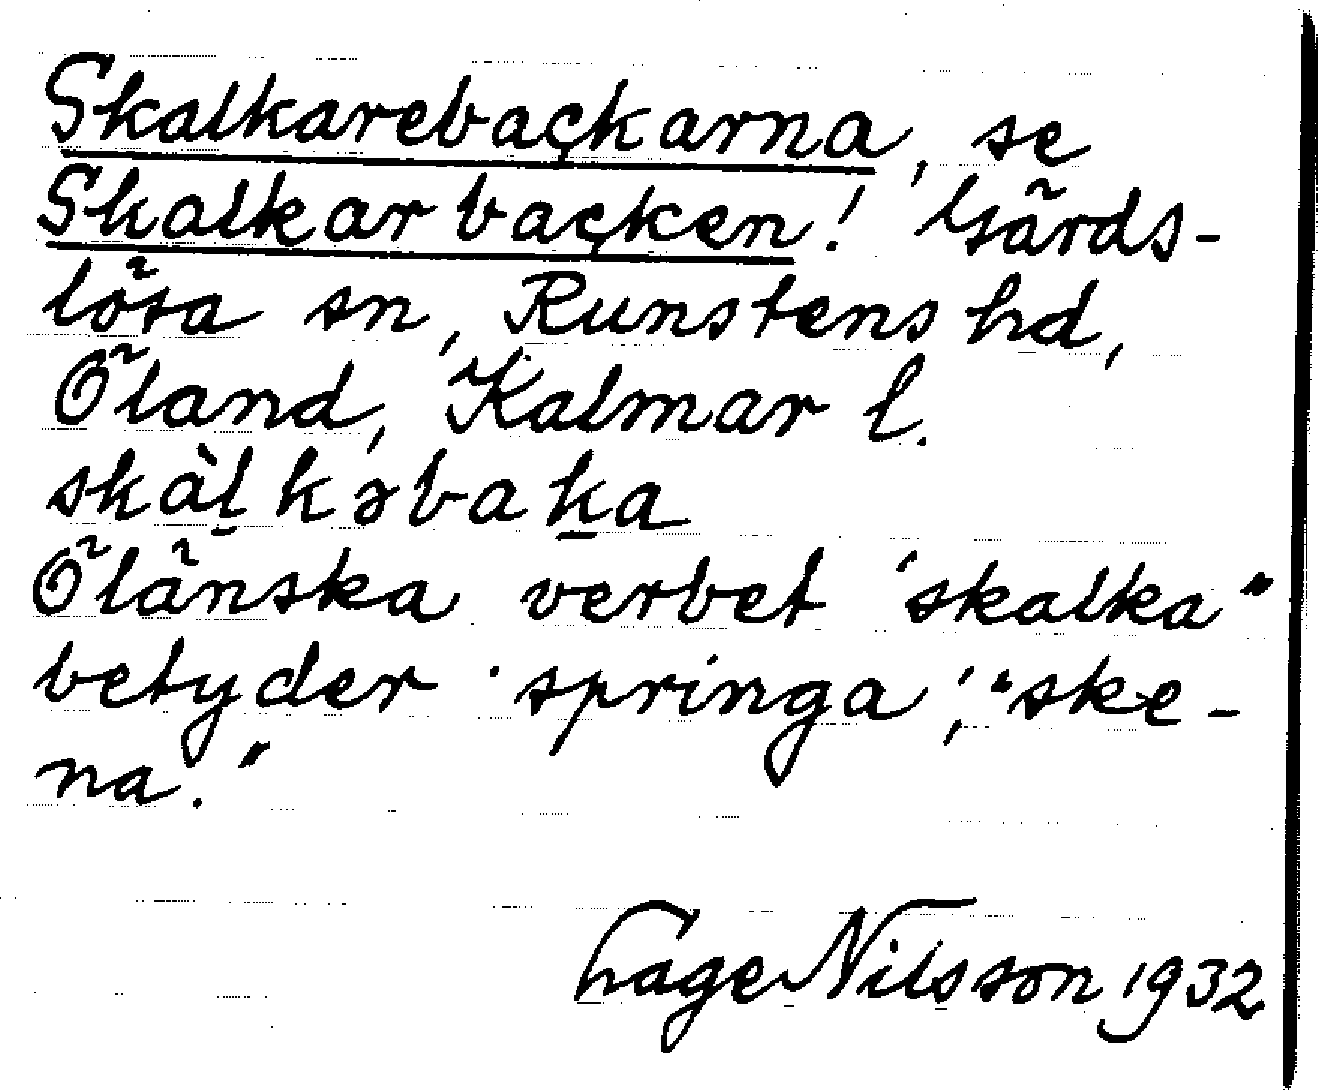 Skalkarebackarna, se
Skalkarbacken! Gärds-
lösa sn, Runstens hd,
Öland, Kalmar l.
skàl̠kəbak̠a
Öländska verbet "skalka"
betyder "springa", "ske-
na."
Hage Nilsson 1932